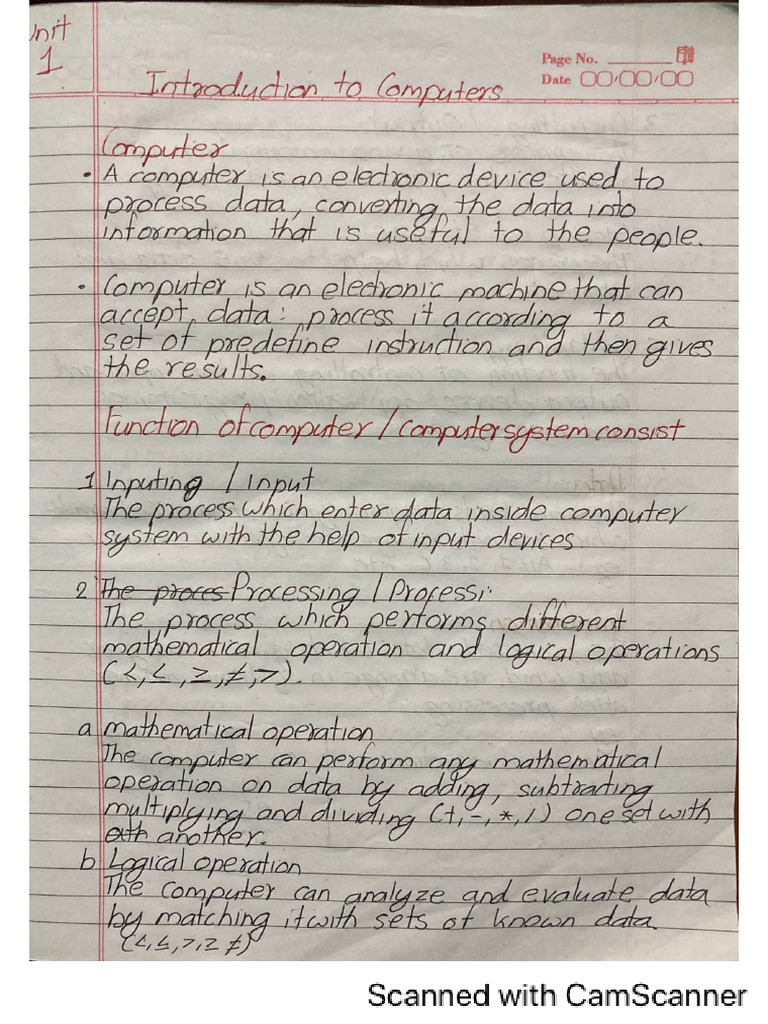 Unit
1
Page No.
Date 00/00/00
Introduction to Computers
Computer
• A computer is an electronic device used to
process data, converting the data into
information that is useful to the people.
• Computer is an electronic machine that can
accept data; process it according to a
set of predefine instruction and then gives
the results.
Function of computer / computer system consist
1 Inputing / input
The process which enter data inside computer
system with the help of input devices.
2 The proces Processing / Processi
The process which performs different
mathematical operation and logical operations
(<, ≤, ≥, ≠, >).
a mathematical operation
The computer can perform any mathematical
operation on data by adding, subtracting
multiplying and dividing (+, -, *, /) one set with
another.
b Logical operation
The computer can analyze and evaluate data
by matching it with sets of known data.
(<, ≤, >, ≥ ≠)
Scanned with CamScanner